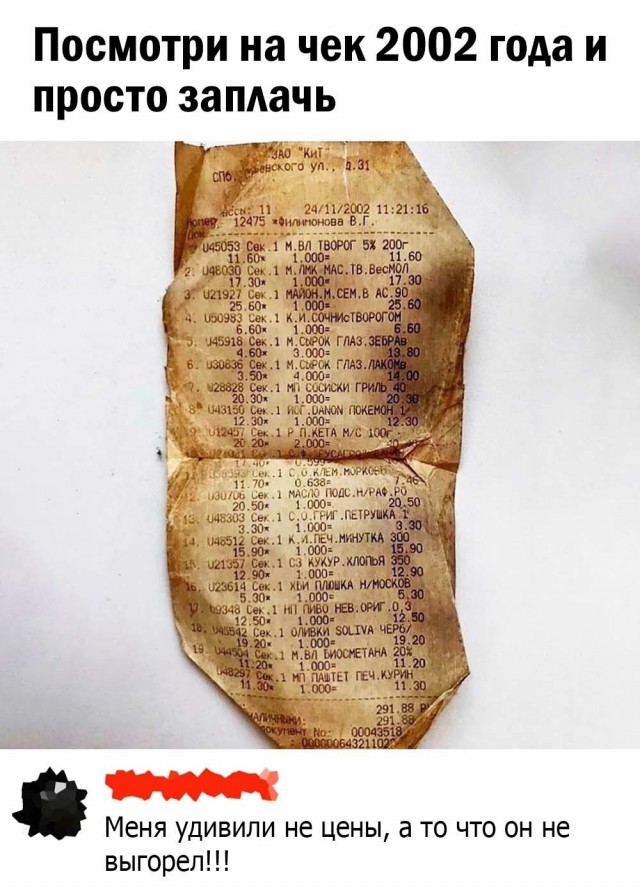 Посмотри на чек 2002 года и
просто заплачь
ЗАО "КиТ"
СПб, ул., д.31
11 24/11/2002 11:21:16
12475 *Филимонова В.Г.
U45053 Сек.1 М.ВЛ ТВОРОГ 5% 200г
11.60* 1.000= 11.60
2. U48030 Сек.1 М.ЛМК МАС.ТВ.ВесМОЛ
17.30* 1.000= 17.30
3. U21927 Сек.1 МАЙОН.М.СЕМ.В АС.90
25.60* 1.000= 25.60
4. U50983 Сек.1 К.И.СОЧНИсТВОРОГОМ
6.60* 1.000= 6.60
5. U45918 Сек.1 М.СЫРОК ГЛАЗ.ЗЕБРАв
4.60* 3.000= 13.80
6. U30836 Сек.1 М.СЫРОК ГЛАЗ.ЛАКОМв
3.50* 4.000= 14.00
7. U28828 Сек.1 МП СОСИСКИ ГРИЛЬ 40
20.30* 1.000= 20.30
8* U43150 Сек.1 ЙОГ.DANON ПОКЕМОН 1
12.30* 1.000= 12.30
9. U12457 Сек.1 Р П.КЕТА М/С 100г
20.20* 2.000=
0.599=
Сек.1 С.О.КЛЕМ.МОРКОВЬ
11.70* 0.638= 7.46
U30706 Сек.1 МАСЛО ПОДС.Н/РАФ.РО
20.50* 1.000= 20.50
13. U48303 Сек.1 С.О.ГРИГ.ПЕТРУШКА 1
3.30* 1.000= 3.30
14. U48512 Сек.1 К.И.ПЕЧ.МИНУТКА 300
15.90* 1.000= 15.90
15. U21357 Сек.1 СЗ КУКУР.ХЛОПЬЯ 350
12.90* 1.000= 12.90
16. U23614 Сек.1 ХБИ ПЛЮШКА Н/МОСКОВ
5.30* 1.000= 5.30
17. U9348 Сек.1 НП ПИВО НЕВ.ОРИГ.0,3
12.50* 1.000= 12.50
18. U45542 Сек.1 ОЛИВКИ SOLIVA ЧЕРб/
19.20* 1.000= 19.20
19. U44504 Сек.1 М.ВЛ БИОСМЕТАНА 20%
11.20* 1.000= 11.20
U48297 Сек.1 МП ПАШТЕТ ПЕЧ.КУРИН
11.30* 1.000= 11.30
291.88 Р
НАЛИЧНЫМИ: 291.88
Документ No: 00043518
Меня удивили не цены, а то что он не
выгорел!!!